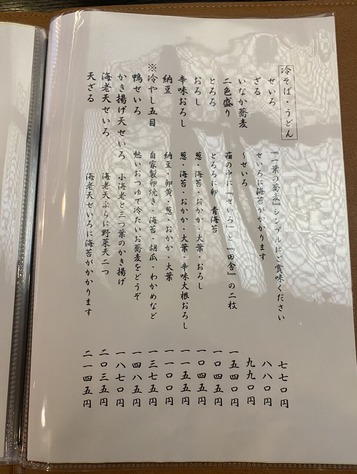 冷そば・うどん
せいろ 「一葉の蕎麦」シンプルにご賞味ください 七七〇円
ざる せいろに海苔がかかります 八八〇円
いなか蕎麦 九九〇円
二色盛り 箱の中に「せいろ」と「田舎」の二枚 一五四〇円
とろろ とろろに卵 青海苔 一一〇〇円
おろし 葱・海苔・おかか・大葉・おろし 一〇四五円
辛味おろし 葱・海苔・おかか・大葉・辛味大根おろし 一一五五円
納豆 納豆・卵黄・葱・おかか・大葉 一一〇〇円
※冷やし五目 自家製卵焼き・海苔・胡瓜・わかめなど 一三七五円
鴨せいろ 熱いおつゆで冷たいお蕎麦をどうぞ 一四八五円
かき揚げ天せいろ 小海老と三つ葉のかき揚げ 一八七〇円
海老天せいろ 海老天ぷらに野菜天二つ 二〇三五円
天ざる 海老天せいろに海苔がかかります 二一四五円